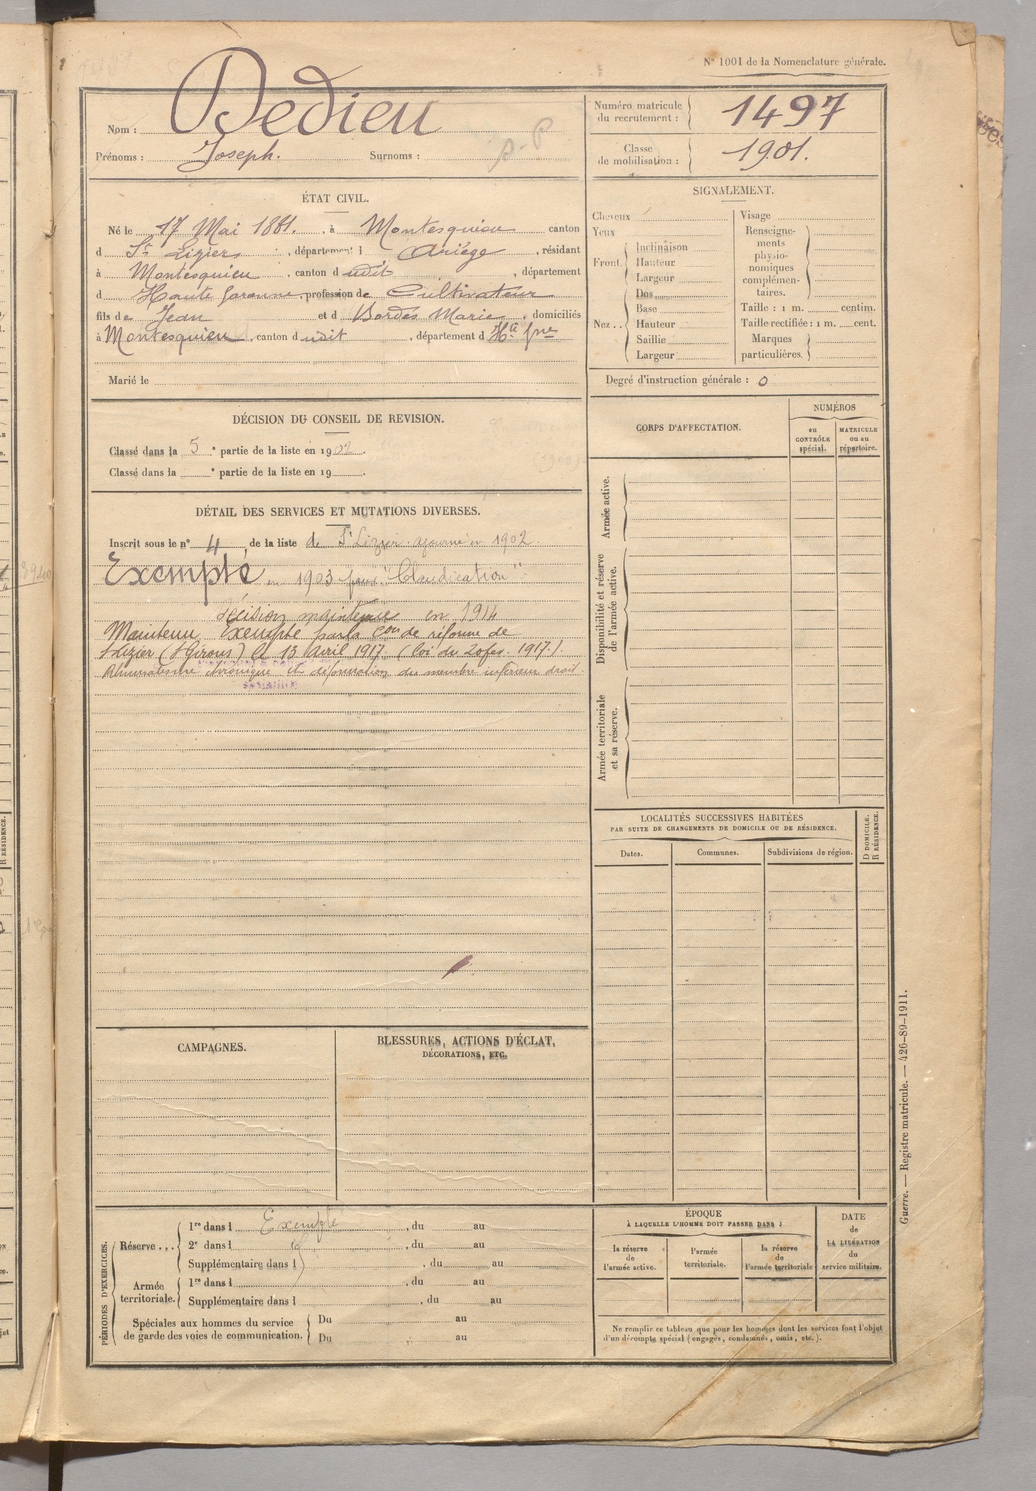 N° 1001 de la Nomenclature générale.
Nom : Dedieu
Prénoms : Joseph. Surnoms :
Numéro matricule du recrutement : 1497
Classe de mobilisation : 1901.
ÉTAT CIVIL.
Né le 17 Mai 1881. , à Montesquieu canton
d St Lizier , département d Ariège , résidant
à Montesquieu , canton d udit , département
d Haute Garonne, profession de Cultivateur
fils de Jean et d Bordes Marie , domiciliés
à Montesquieu , canton d udit , département d Hte Gne
Marié le
SIGNALEMENT.
Cheveux
Yeux
Front
Inclinaison
Hauteur
Largeur
Nez ..
Dos
Base
Hauteur
Saillie
Largeur
Visage
Renseignements physionomiques complémentaires.
Taille : 1 m. centim.
Taille rectifiée : 1 m. cent.
Marques particulières.
Degré d'instruction générale : 0
DÉCISION DU CONSEIL DE REVISION.
Classé dans la 5 e partie de la liste en 1902.
Classé dans la e partie de la liste en 19 .
DÉTAIL DES SERVICES ET MUTATIONS DIVERSES.
Inscrit sous le n° 4 , de la liste de St Lizier. ajourné en 1902.
Exempté en 1903 pour "Claudication".
décision maintenue en 1914
Maintenu Exempté par la Con de réforme de
St Lizier (St Girons) le 13 Avril 1917. (Loi du 20 fév. 1917.).
Rhumatisme chronique et déformation du membre inférieur droit.
CORPS D'AFFECTATION.
NUMÉROS
au CONTRÔLE spécial.
MATRICULE ou au répertoire.
Armée active.
Disponibilité et réserve de l'armée active.
Armée territoriale et sa réserve.
LOCALITÉS SUCCESSIVES HABITÉES
PAR SUITE DE CHANGEMENTS DE DOMICILE OU DE RÉSIDENCE.
D DOMICILE.
R RÉSIDENCE.
Dates. Communes. Subdivisions de région.
CAMPAGNES.
BLESSURES, ACTIONS D'ÉCLAT,
DÉCORATIONS, ETC.
PÉRIODES D'EXERCICES.
Réserve ...
1re dans l Exempté , du au
2e dans l , du au
Supplémentaire dans l , du au
Armée territoriale.
1re dans l , du au
Supplémentaire dans l , du au
Spéciales aux hommes du service de garde des voies de communication.
Du au
Du au
ÉPOQUE
À LAQUELLE L'HOMME DOIT PASSER DANS :
la réserve de l'armée active.
l'armée territoriale.
la réserve de l'armée territoriale
DATE de LA LIBÉRATION du service militaire.
Ne remplir ce tableau que pour les hommes dont les services font l'objet
d'un décompte spécial (engagés, condamnés, omis, etc.).
Guerre. — Registre matricule. — 426-89-1911.